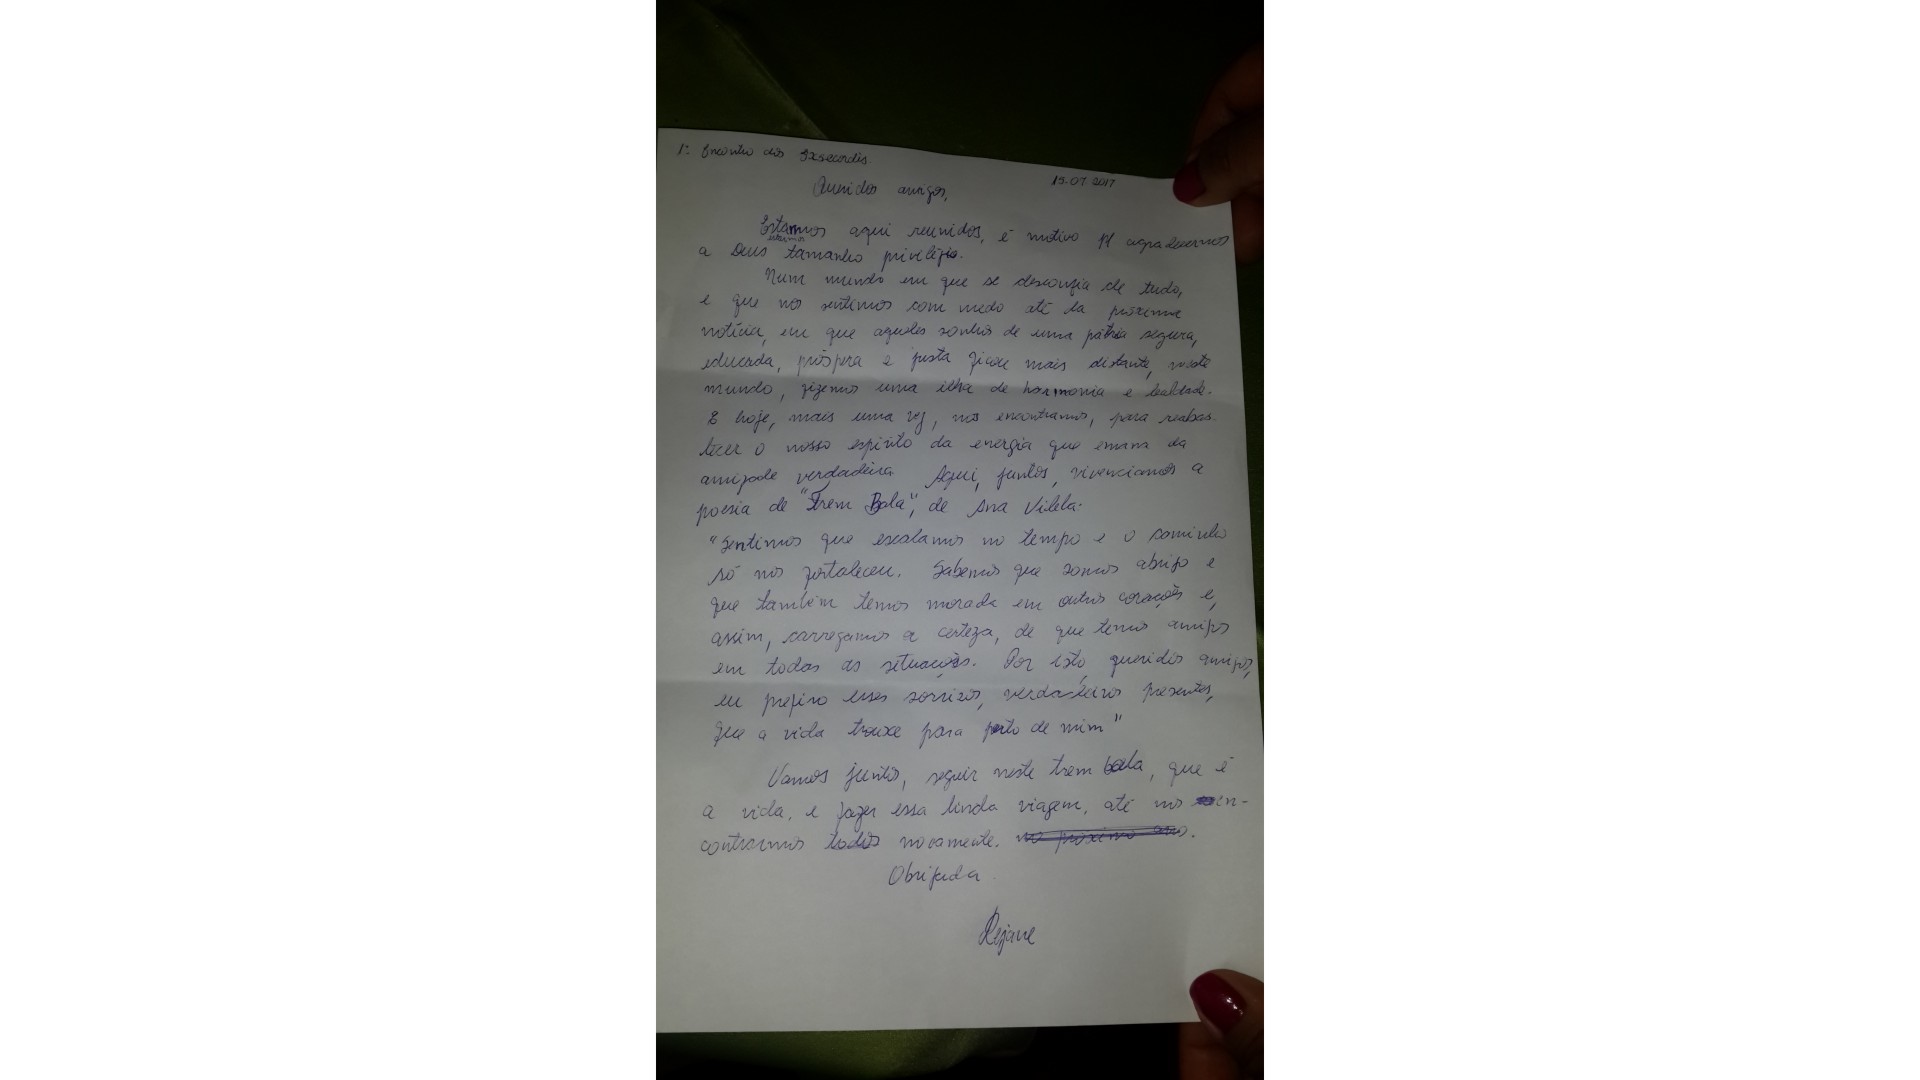 1º Encontro dos Exsecordis.
15.07.2017
Queridos amigos,
Estarmos aqui reunidos, é motivo p/ agradecermos
estarmos
a Deus tamanho privilégio.
Num mundo em que se desconfia de tudo,
e que nos sentimos com medo até da próxima
notícia, em que aqueles sonhos de uma pátria segura,
educada, próspera e justa ficou mais distante, neste
mundo, fizemos uma ilha de harmonia e lealdade.
E hoje, mais uma vez, nos encontramos, para reabas-
tecer o nosso espírito da energia que emana da
amizade verdadeira. Aqui, juntos, vivenciamos a
poesia de "Trem Bala", de Ana Vilela:
"Sentimos que escalamos no tempo e o caminho
só nos fortaleceu. Sabemos que somos abrigo e
que também temos morada em outros corações e,
assim, carregamos a certeza, de que temos amigos
em todas as situações. Por isto, queridos amigos,
eu prefiro esses sorrisos, verdadeiros presentes,
que a vida trouxe para perto de mim"
Vamos juntos, seguir neste trem bala, que é
a vida, e fazer essa linda viagem, até nos en-
contrarmos todos novamente. no próximo ano.
Obrigada.
Rejane